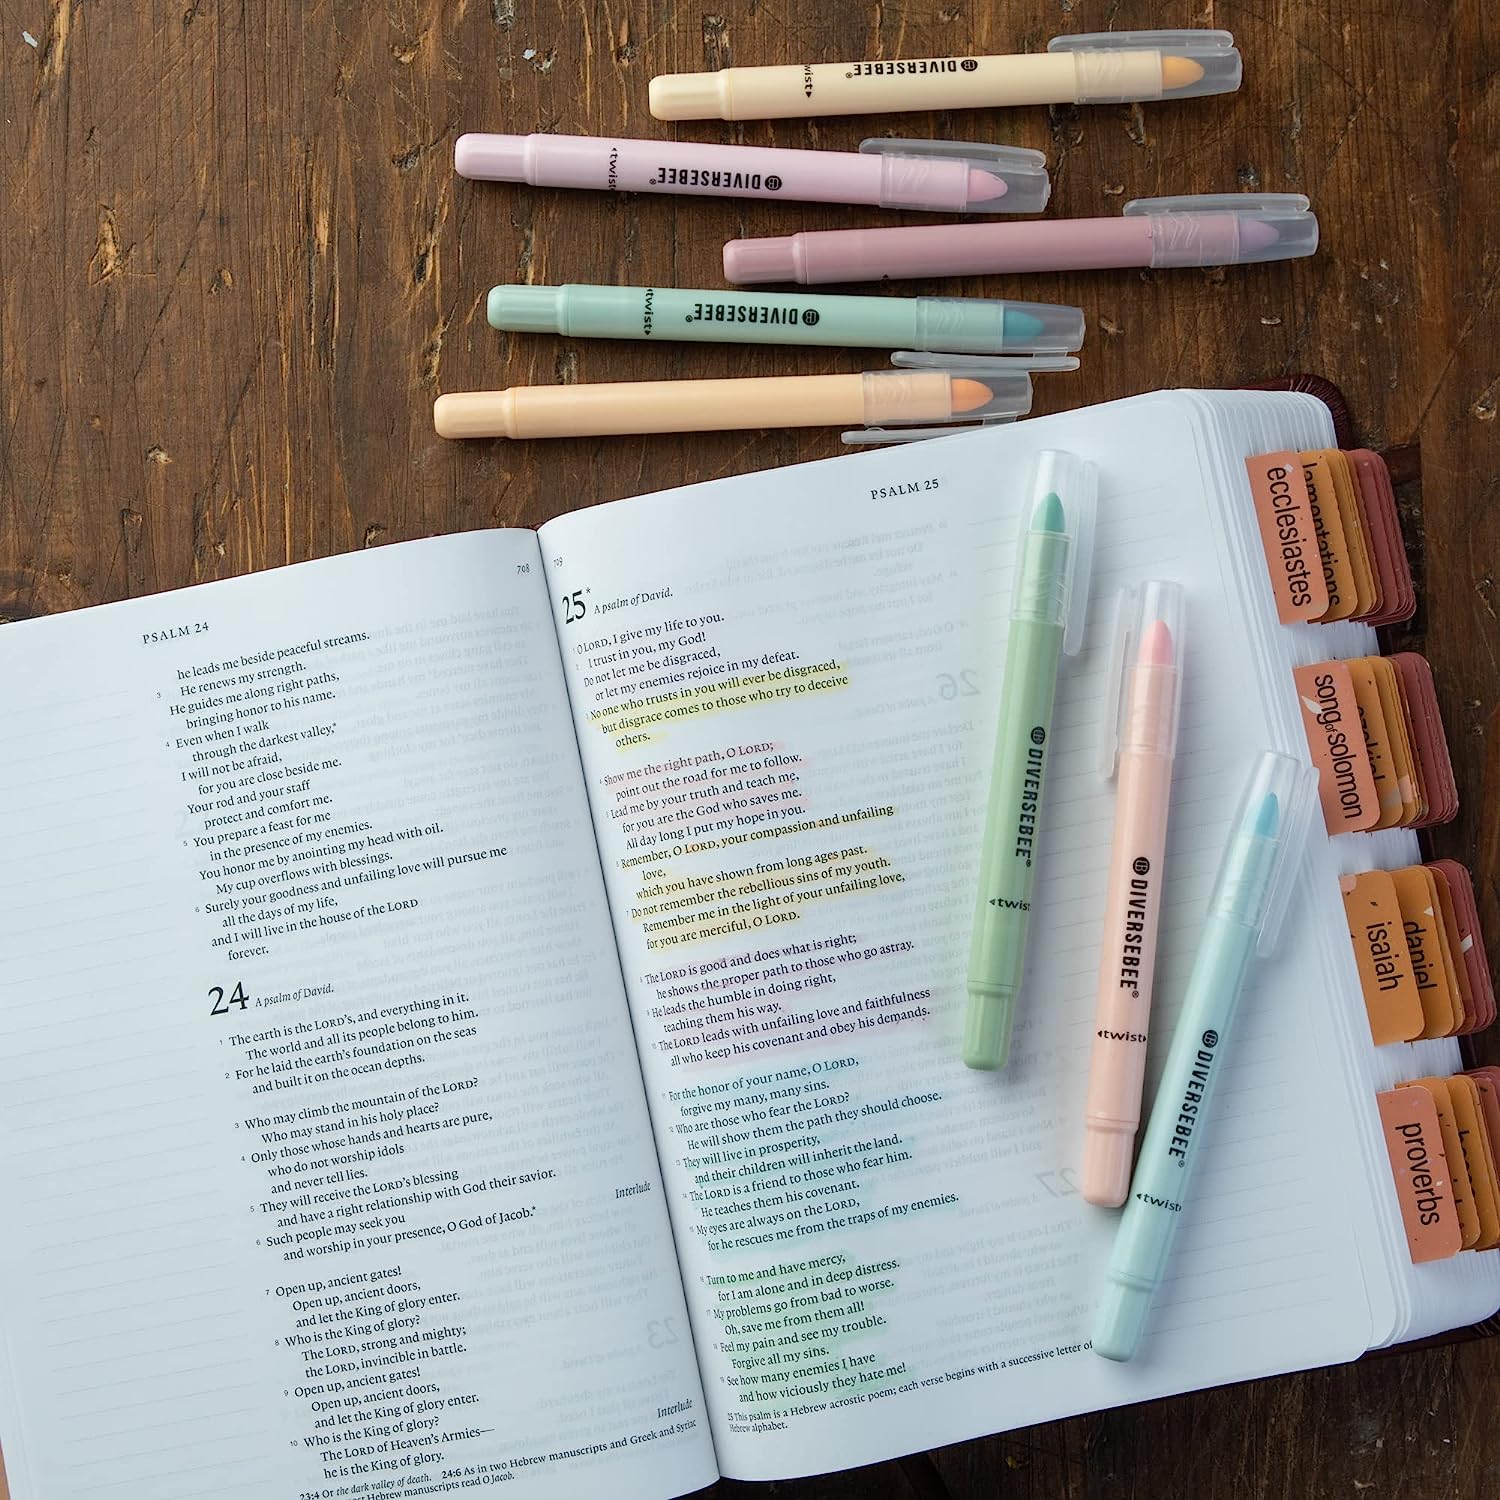 twist▸
DIVERSEBEE®
◂twist
DIVERSEBEE®
◂twist▸
DIVERSEBEE®
PSALM 24
708
he leads me beside peaceful streams.
3 He renews my strength.
He guides me along right paths,
bringing honor to his name.
4 Even when I walk
through the darkest valley,*
I will not be afraid,
for you are close beside me.
Your rod and your staff
protect and comfort me.
5 You prepare a feast for me
in the presence of my enemies.
You honor me by anointing my head with oil.
My cup overflows with blessings.
6 Surely your goodness and unfailing love will pursue me
all the days of my life,
and I will live in the house of the LORD
forever.
24 A psalm of David.
1 The earth is the LORD's, and everything in it.
The world and all its people belong to him.
2 For he laid the earth's foundation on the seas
and built it on the ocean depths.
3 Who may climb the mountain of the LORD?
Who may stand in his holy place?
4 Only those whose hands and hearts are pure,
who do not worship idols
and never tell lies.
5 They will receive the LORD's blessing
and have a right relationship with God their savior.
6 Such people may seek you
and worship in your presence, O God of Jacob.*
Interlude
7 Open up, ancient gates!
Open up, ancient doors,
and let the King of glory enter.
8 Who is the King of glory?
The LORD, strong and mighty;
the LORD, invincible in battle.
9 Open up, ancient gates!
Open up, ancient doors,
and let the King of glory enter.
10 Who is the King of glory?
The LORD of Heaven's Armies—
he is the King of glory.
Interlude
23:4 Or the dark valley of death. 24:6 As in two Hebrew manuscripts and Greek and Syriac
Hebrew manuscripts read O Jacob.
709
PSALM 25
25* A psalm of David.
1 O LORD, I give my life to you.
2 I trust in you, my God!
Do not let me be disgraced,
or let my enemies rejoice in my defeat.
3 No one who trusts in you will ever be disgraced,
but disgrace comes to those who try to deceive
others.
4 Show me the right path, O LORD;
point out the road for me to follow.
5 Lead me by your truth and teach me,
for you are the God who saves me.
All day long I put my hope in you.
6 Remember, O LORD, your compassion and unfailing
love,
which you have shown from long ages past.
7 Do not remember the rebellious sins of my youth.
Remember me in the light of your unfailing love,
for you are merciful, O LORD.
8 The LORD is good and does what is right;
he shows the proper path to those who go astray.
9 He leads the humble in doing right,
teaching them his way.
10 The LORD leads with unfailing love and faithfulness
all who keep his covenant and obey his demands.
11 For the honor of your name, O LORD,
forgive my many, many sins.
12 Who are those who fear the LORD?
He will show them the path they should choose.
13 They will live in prosperity,
and their children will inherit the land.
14 The LORD is a friend to those who fear him.
He teaches them his covenant.
15 My eyes are always on the LORD,
for he rescues me from the traps of my enemies.
16 Turn to me and have mercy,
for I am alone and in deep distress.
17 My problems go from bad to worse.
Oh, save me from them all!
18 Feel my pain and see my trouble.
Forgive all my sins.
19 See how many enemies I have
and how viciously they hate me!
25 This psalm is a Hebrew acrostic poem; each verse begins with a successive letter of
Hebrew alphabet.
DIVERSEBEE®
◂twist
DIVERSEBEE®
◂twist▸
DIVERSEBEE®
◂twist
ecclesiastes
lamentations
song of solomon
isaiah
daniel
proverbs